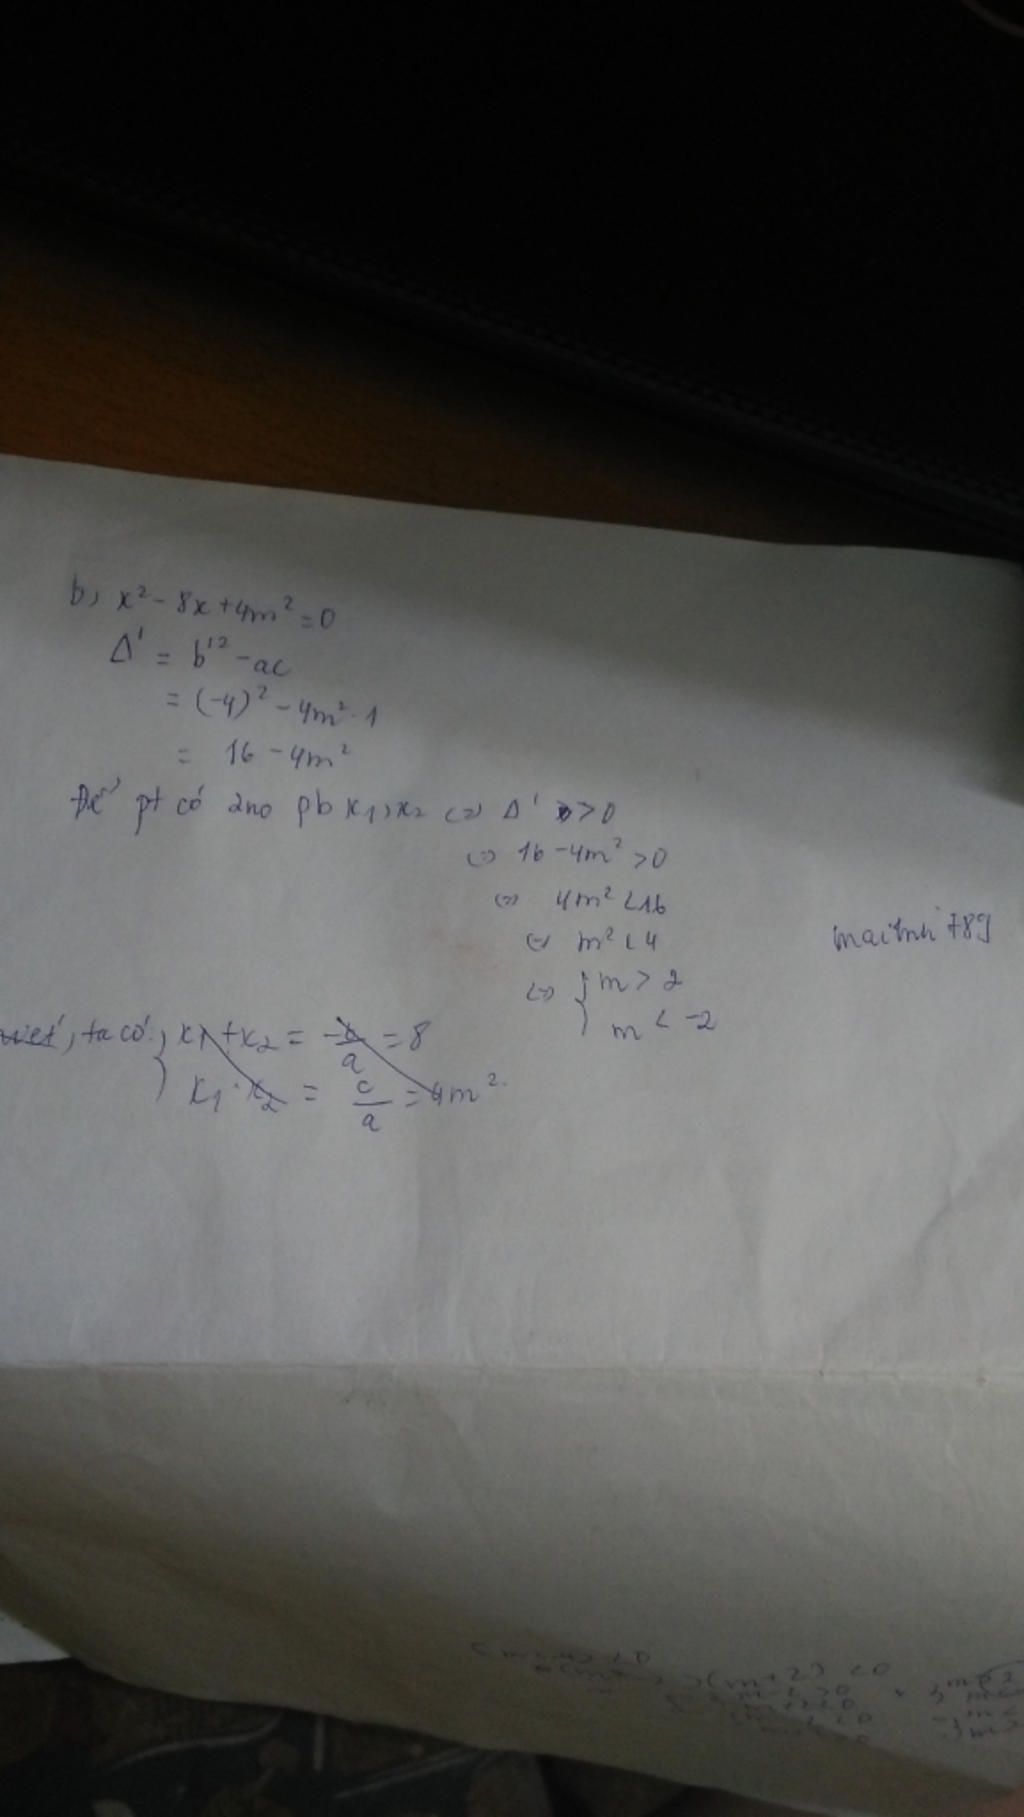 b, x² - 8x + 4m² = 0
Δ' = b'² - ac
= (-4)² - 4m² · 1
= 16 - 4m²
Để pt có 2no pb x₁, x₂ (=) Δ' > 0
(=) 16 - 4m² > 0
(=) 4m² < 16
(=) m² < 4
(=) { m > 2
m < -2
maitmh t89
ta có: { x₁ + x₂ = -b/a = 8
x₁ · x₂ = c/a = 4m²
(m+2) < 0